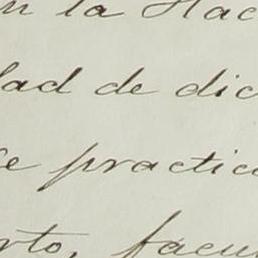 en la Hac
dad de dic
de practic
rto, facul